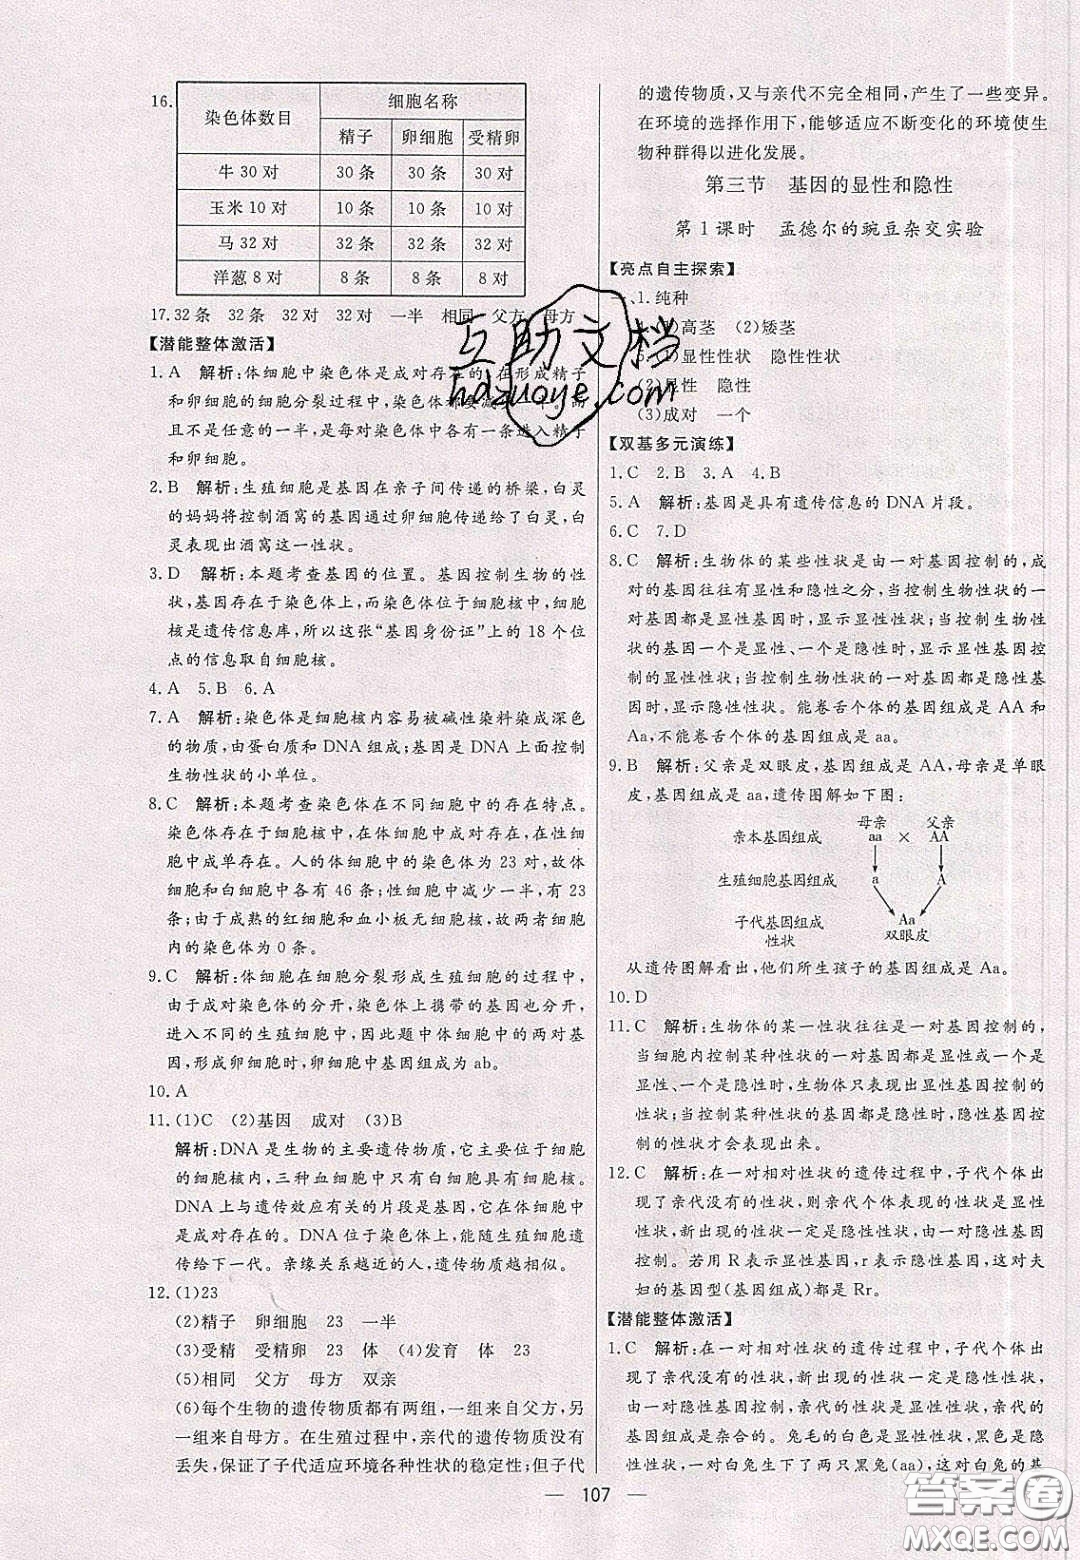 16.
染色体数目 细胞名称
精子 卵细胞 受精卵
牛 30 对 30 条 30 条 30 对
玉米 10 对 10 条 10 条 10 对
马 32 对 32 条 32 条 32 对
洋葱 8 对 8 条 8 条 8 对
17. 32 条 32 条 32 对 32 对 一半 相同 父方 母方
【潜能整体激活】
1. A 解析:体细胞中染色体是成对存在的,在形成精子
和卵细胞的细胞分裂过程中,染色体都要减少一半。而
且不是任意的一半,是每对染色体中各有一条进入精子
和卵细胞。
2. B 解析:生殖细胞是基因在亲子间传递的桥梁,白灵
的妈妈将控制酒窝的基因通过卵细胞传递给了白灵,白
灵表现出酒窝这一性状。
3. D 解析:本题考查基因的位置。基因控制生物的性
状,基因存在于染色体上,而染色体位于细胞核中,细胞
核是遗传信息库,所以这张“基因身份证”上的 18 个位
点的信息取自细胞核。
4. A 5. B 6. A
7. A 解析:染色体是细胞核内容易被碱性染料染成深色
的物质,由蛋白质和 DNA 组成;基因是 DNA 上面控制
生物性状的小单位。
8. C 解析:本题考查染色体在不同细胞中的存在特点。
染色体存在于细胞核中,在体细胞中成对存在,在性细
胞中成单存在。人的体细胞中的染色体为 23 对,故体
细胞和白细胞中各有 46 条;性细胞中减少一半,有 23
条;由于成熟的红细胞和血小板无细胞核,故两者细胞
内的染色体为 0 条。
9. C 解析:体细胞在细胞分裂形成生殖细胞的过程中,
由于成对染色体的分开,染色体上携带的基因也分开,
进入不同的生殖细胞中,因此题中体细胞中的两对基
因,形成卵细胞时,卵细胞中基因组成为 ab。
10. A
11. (1)C (2)基因 成对 (3)B
解析:DNA 是生物的主要遗传物质,它主要位于细胞
的细胞核内,三种血细胞中只有白细胞具有细胞核。
DNA 上与遗传效应有关的片段是基因,在体细胞中
是成对存在的。DNA 位于染色体上,能随生殖细胞遗
传给下一代。亲缘关系越近的人,遗传物质越相似。
12. (1)23
(2)精子 卵细胞 23 一半
(3)受精 受精卵 23 体 (4)发育 体 23
(5)相同 父方 母方 双亲
(6)每个生物的遗传物质都有两组,一组来自父方,另
一组来自母方。在生殖过程中,亲代的遗传物质没有
丢失,保证了子代适应环境各种性状的稳定性;但子代
的遗传物质,又与亲代不完全相同,产生了一些变异。
在环境的选择作用下,能够适应不断变化的环境使生
物种群得以进化发展。
第三节 基因的显性和隐性
第 1 课时 孟德尔的豌豆杂交实验
【亮点自主探索】
一、1. 纯种
(1)高茎 (2)矮茎
5. (1)显性性状 隐性性状
(2)显性 隐性
(3)成对 一个
【双基多元演练】
1. C 2. B 3. A 4. B
5. A 解析:基因是具有遗传信息的 DNA 片段。
6. C 7. D
8. C 解析:生物体的某些性状是由一对基因控制的,成
对的基因往往有显性和隐性之分,当控制生物性状的一
对基因都是显性基因时,显示显性性状;当控制生物性状
的基因一个是显性、一个是隐性时,显示显性基因控制的
显性性状;当控制生物性状的一对基因都是隐性基
因时,显示隐性性状。能卷舌个体的基因组成是 AA 和
Aa,不能卷舌个体的基因组成是 aa。
9. B 解析:父亲是双眼皮,基因组成是 AA,母亲是单眼
皮,基因组成是 aa,遗传图解如下图:
母亲 父亲
亲本基因组成 aa × AA
生殖细胞基因组成 a A
子代基因组成 Aa
性状 双眼皮
从遗传图解看出,他们所生孩子的基因组成是 Aa。
10. D
11. C 解析:生物体的某一性状往往是一对基因控制的,
当细胞内控制某种性状的一对基因都是显性或一个是
显性、一个是隐性时,生物体只表现出显性基因控制的
性状;当控制某种性状的基因都是隐性时,隐性基因控
制的性状才会表现出来。
12. C 解析:在一对相对性状的遗传过程中,子代个体出
现了亲代没有的性状,则亲代个体表现的性状是显性
性状,新出现的性状一定是隐性性状,由一对隐性基因
控制。若用 R 表示显性基因,r 表示隐性基因,这对夫
妇的基因型(基因组成)都是 Rr。
【潜能整体激活】
1. C 解析:在一对相对性状的遗传过程中,子代个体出
现了亲代没有的性状,新出现的性状一定是隐性性状,
由一对隐性基因控制,亲代的性状是显性性状,亲代的
基因组成是杂合的。兔毛的白色是显性,黑色是隐
性性状,一对白兔生下了两只黑兔(aa),这对白兔的基
107
互助文档
hdzuoye.com
答案圈
MXQE.COM